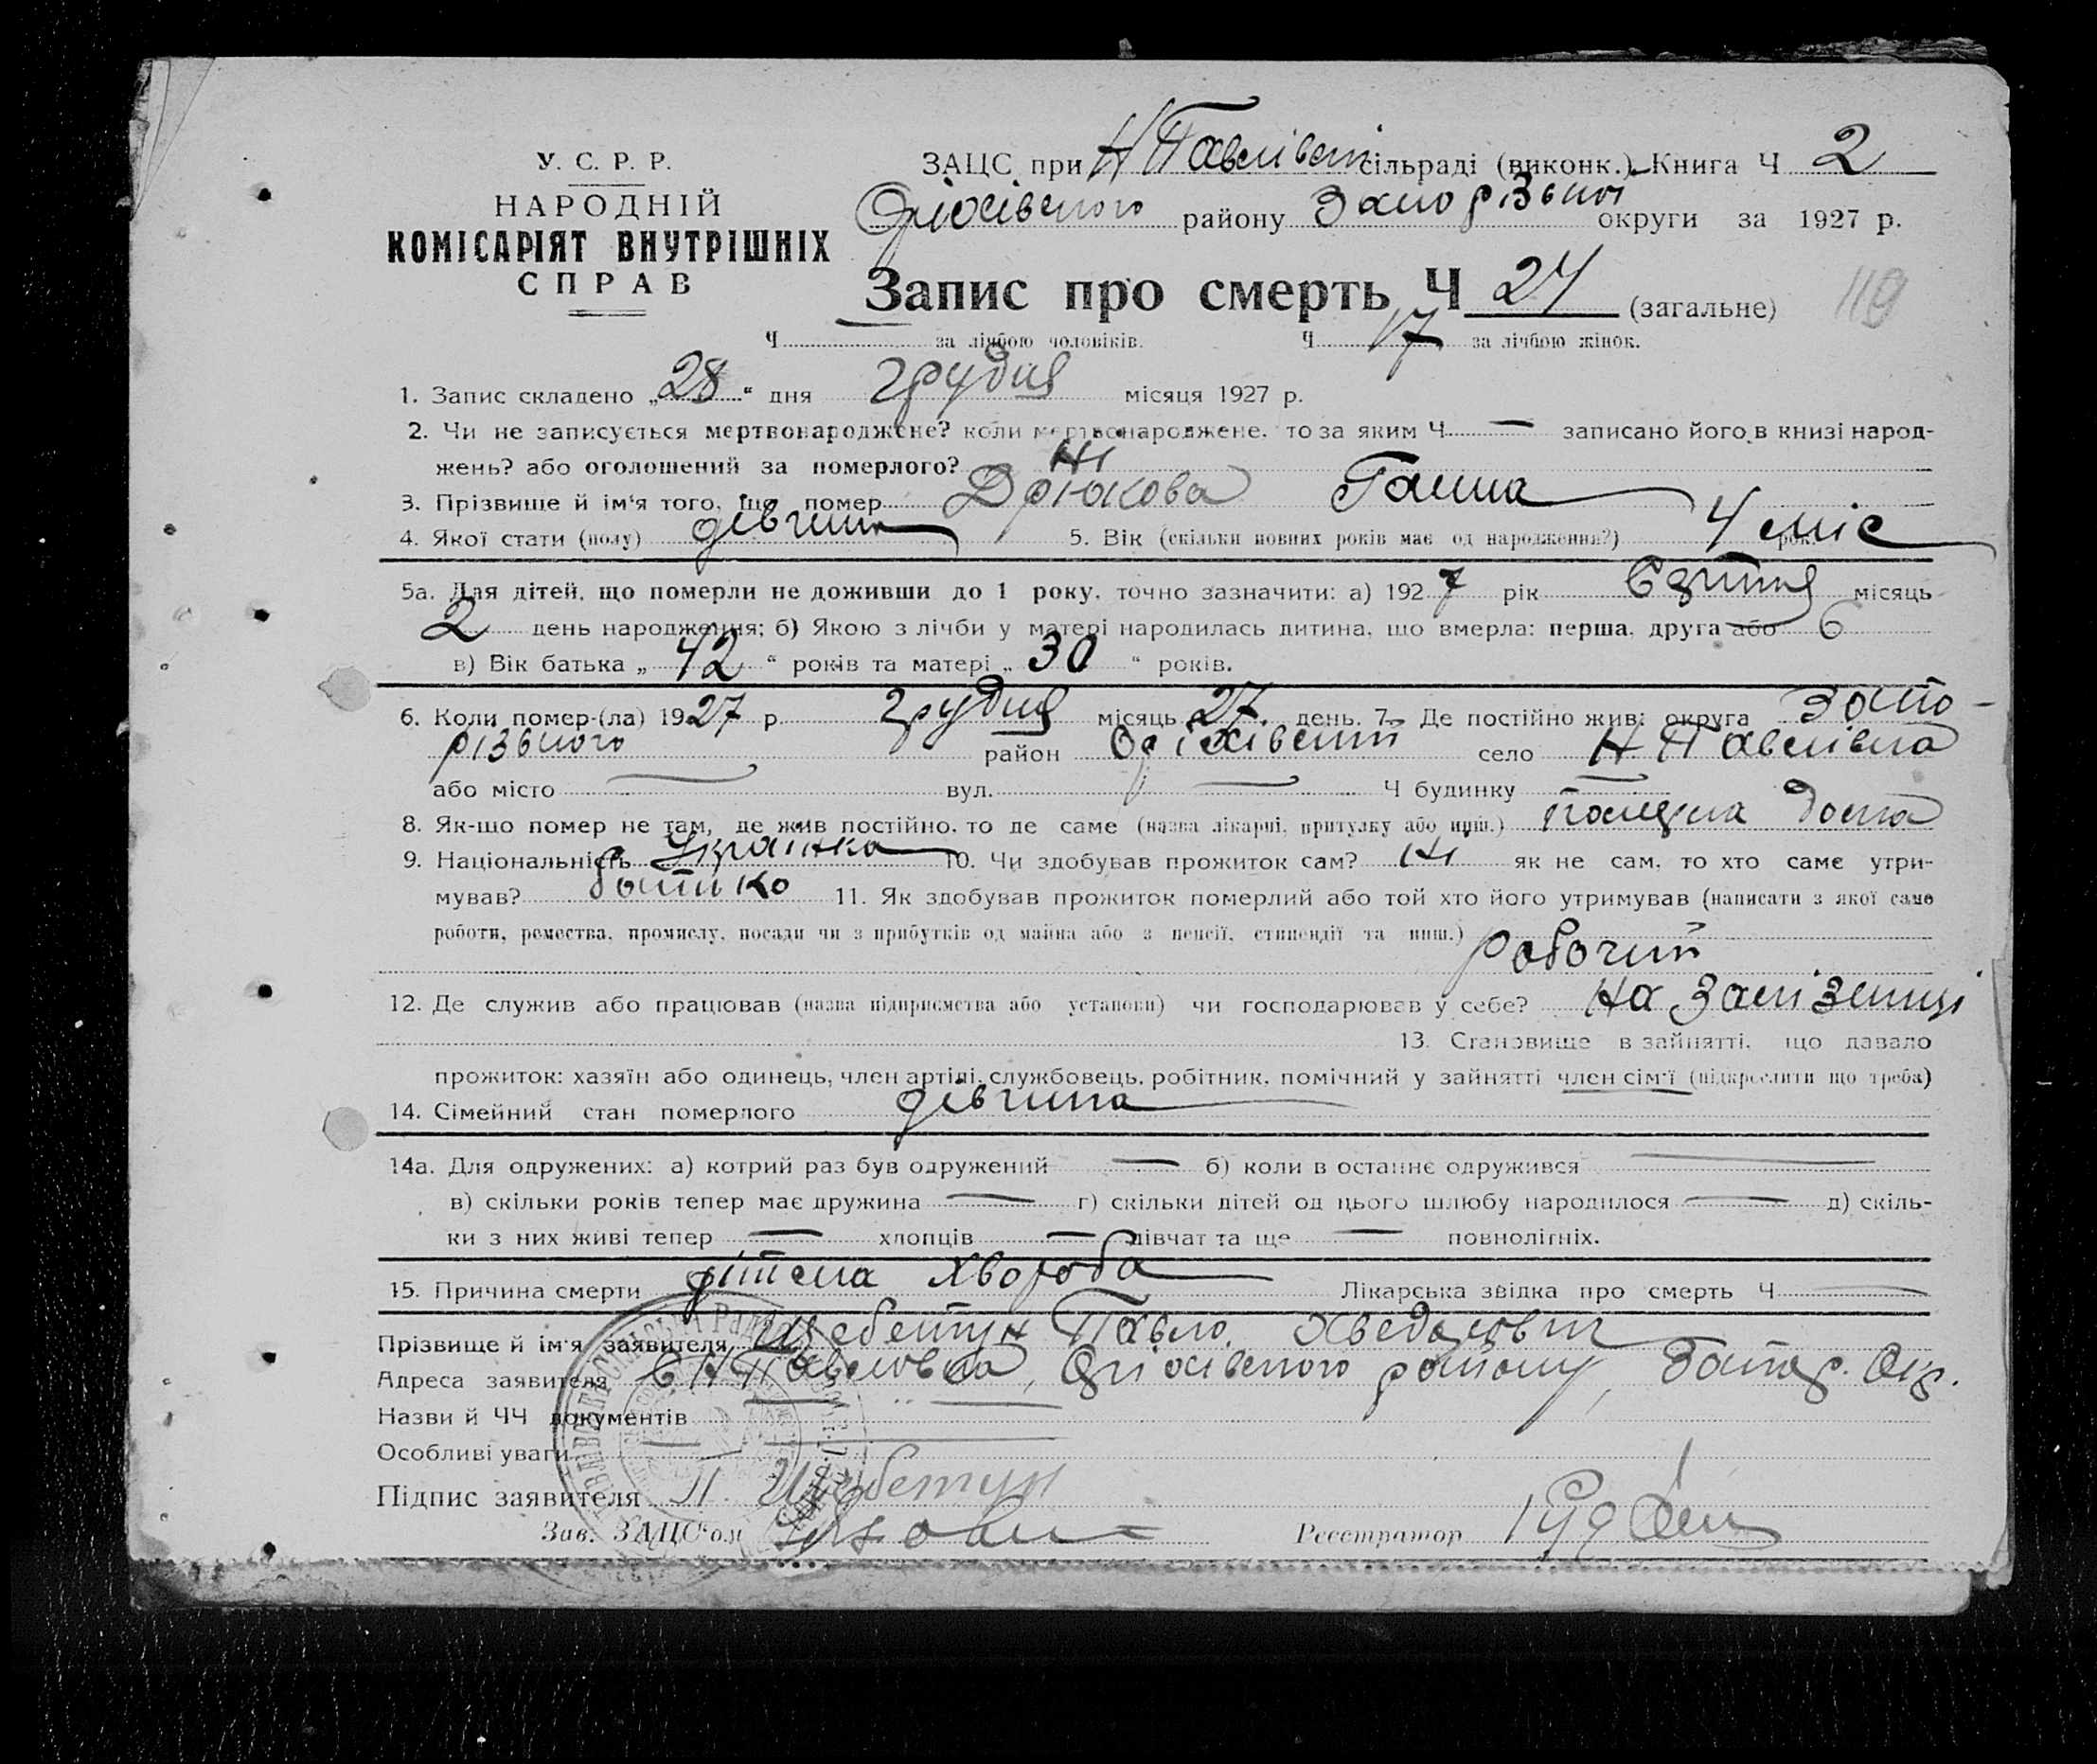 У. С. Р. Р.
НАРОДНІЙ
КОМІСАРІЯТ ВНУТРІШНІХ
СПРАВ
ЗАЦС при Н Павлівській сільраді (виконк.) Книга Ч 2
Оріхівського району Запорізької округи за 1927 р.
Запис про смерть Ч 24 (загальне)
119
Ч за лічбою чоловіків. Ч 17 за лічбою жінок.
1. Запис складено „28“ дня грудня місяця 1927 р.
2. Чи не записується мертвонароджене? коли мертвонароджене, то за яким Ч — записано його в книзі народ-
жень? або оголошений за померлого? Ні
3. Прізвище й ім'я того, що помер Дрюкова Ганна
4. Якої стати (полу) дівчина 5. Вік (скільки повних років має од народження?) 4 міс рок.
5а. Для дітей, що померли не доживши до 1 року, точно зазначити: а) 1927 рік місяць
2 день народження; б) Якою з лічби у матері народилась дитина, що вмерла: перша, друга або 6
в) Вік батька „42“ років та матері „30“ років.
6. Коли помер-(ла) 1927 р. грудня місяць 27. день. 7. Де постійно жив: округа Запо-
різького район Оріхівський село Н Павлівка
або місто — вул. — Ч будинку —
8. Як-що помер не там, де жив постійно, то де саме (назва лікарні, притулку або инш.) дома
9. Національність Українка 10. Чи здобував прожиток сам? Ні як не сам, то хто саме утри-
мував? батько 11. Як здобував прожиток померлий або той хто його утримував (написати з якої саме
роботи, ремества, промислу, посади чи з прибутків од майна або з пенсії, стипендії та инш.) робочий
12. Де служив або працював (назва підприємства або установи) чи господарював у себе? На Залізниці
13. Становище в зайнятті, що давало
прожиток: хазяїн або одинець, член артілі, службовець, робітник, помічний у зайнятті член сім'ї (підкреслити що треба)
14. Сімейний стан померлого дівчина
14а. Для одружених: а) котрий раз був одружений — б) коли в останнє одружився —
в) скільки років тепер має дружина — г) скільки дітей од цього шлюбу народилося — д) скіль-
ки з них живі тепер — хлопців — дівчат та ще — повнолітніх.
15. Причина смерти дітська хвороба Лікарська звідка про смерть Ч —
Прізвище й ім'я заявителя Щебетун Павло
Адреса заявителя С Н Павловка, Оріхівского району, Запор. Окр.
Назви й ЧЧ документів
Особливі уваги
Підпис заявителя П. Щебетун
Зав. ЗАЦС'ом Реєстратор